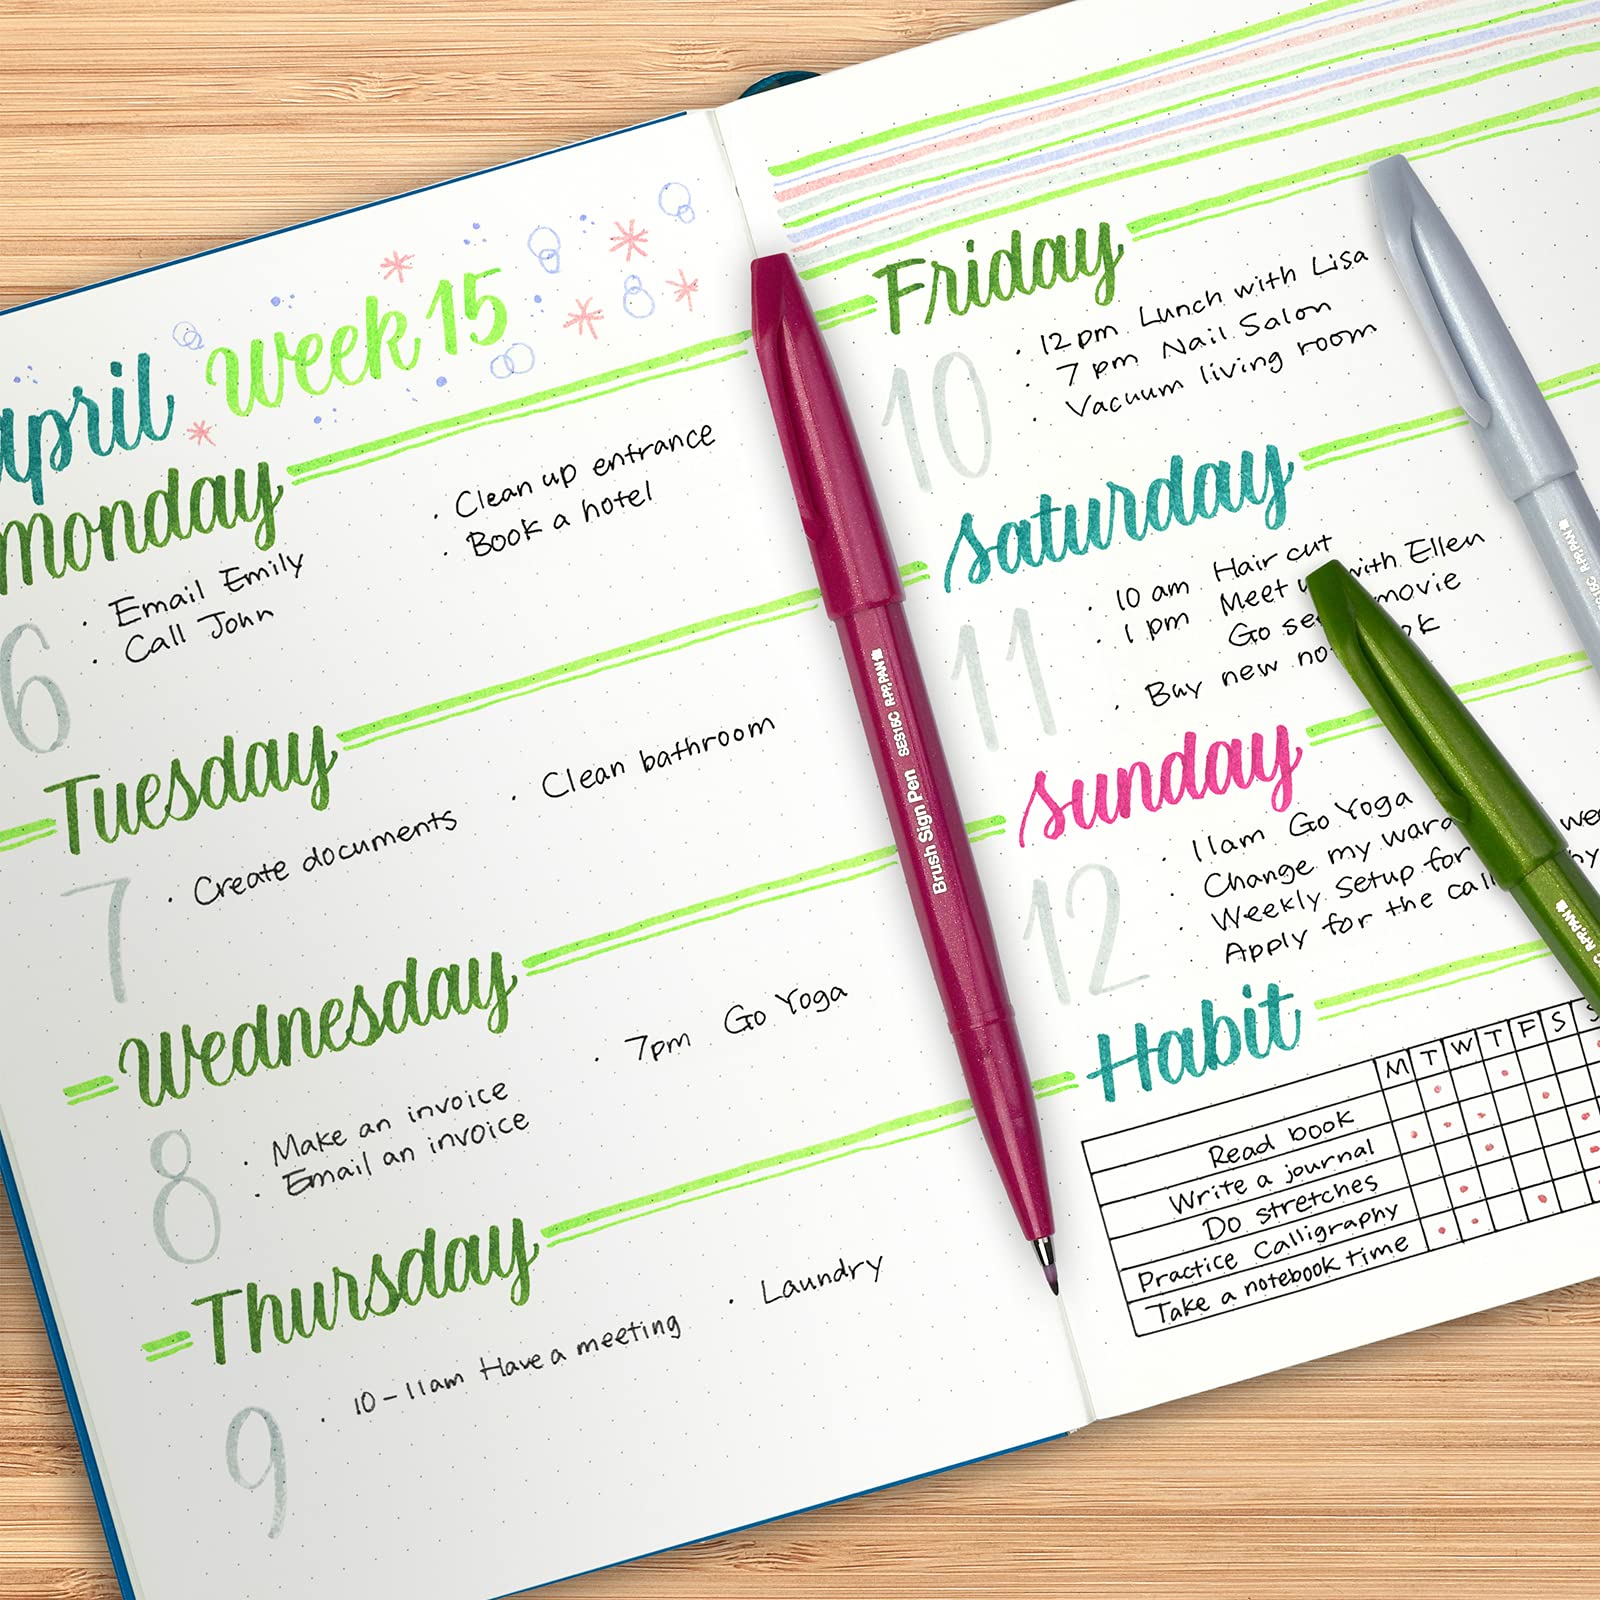 april Week 15
monday
6
· Email Emily
· Call John
· Clean up entrance
· Book a hotel
Tuesday
7
· Create documents
· Clean bathroom
Wednesday
8
· Make an invoice
· Email an invoice
· 7pm Go Yoga
Thursday
9
· 10-11am Have a meeting
· Laundry
Friday
10
· 12pm Lunch with Lisa
· 7pm Nail Salon
· Vacuum living room
Saturday
11
· 10 am Hair cut
· 1 pm Meet with Ellen
Go movie
· Buy new
Sunday
12
· 11am Go Yoga
· Change my
· Weekly Setup for
· Apply for the
Habit
M T W T F S S
Read book
Write a journal
Do stretches
Practice Calligraphy
Take a notebook time
Brush Sign Pen SES15C P.P.PAN
P.P.PAN
P.P.PAN